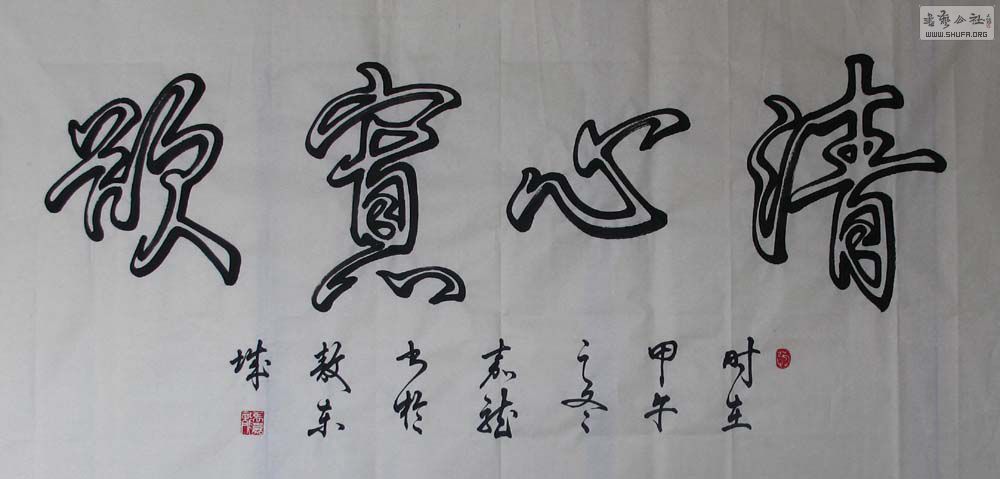 清心寡欲
时在
甲午
之冬
龍
书於
敖东
城
書藝公社
WWW.SHUFA.ORG